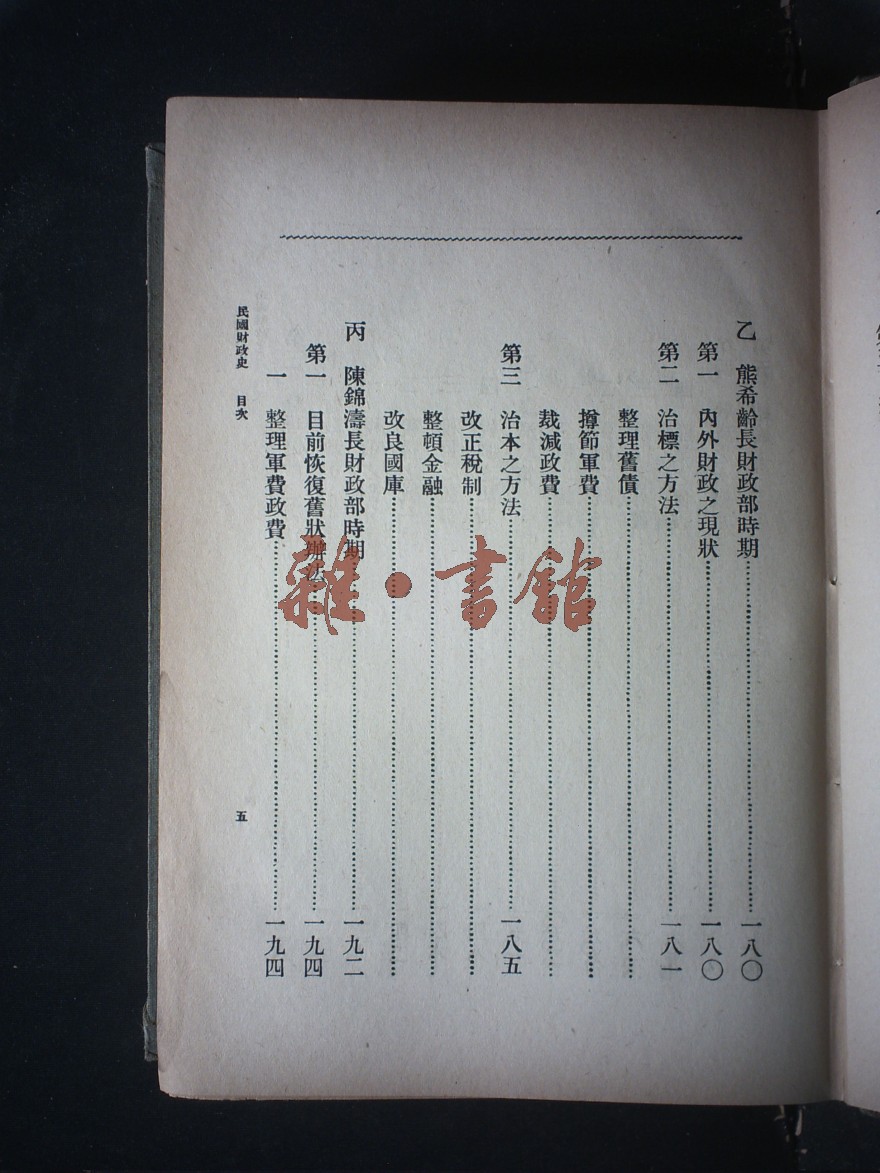 乙 熊希齡長財政部時期……一八〇
第一 內外財政之現狀……一八〇
第二 治標之方法……一八一
整理舊債……
撙節軍費……
裁減政費……
第三 治本之方法……一八五
改正稅制……
整頓金融……
改良國庫……
丙 陳錦濤長財政部時期……一九二
第一 目前恢復舊狀辦法……一九四
一 整理軍費政費……一九四
民國財政史 目次
五
雜·書館